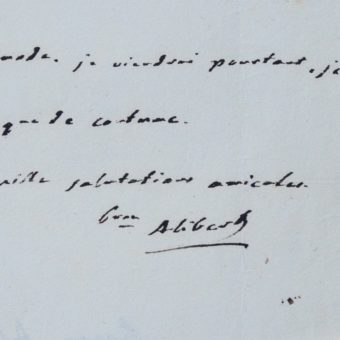 mode. je viendrai pourtant, je
que de coutume.
mille salutations amicales.
Bron
Alibert